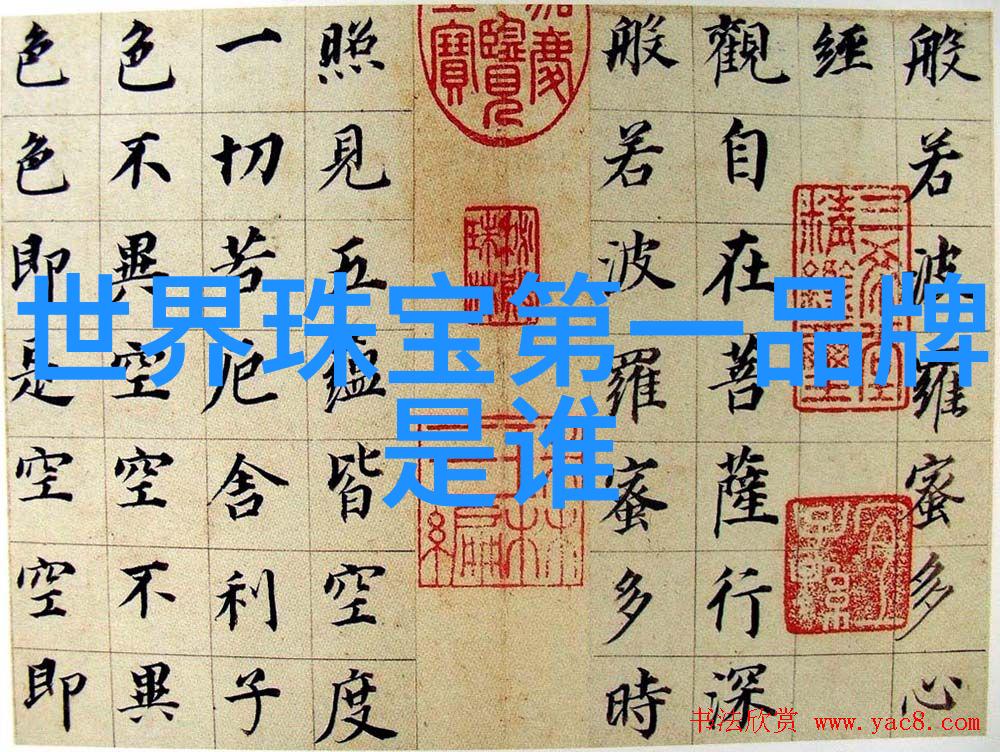 世界珠宝第一品牌
是谁
般若波羅蜜多心
經
觀自在菩薩行深
般若波羅蜜多時
照見五蘊皆空度
一切苦厄舍利子
色不異空空不異
色色即是空空即
三希堂精鑑璽
书法欣赏 www.yac8.com